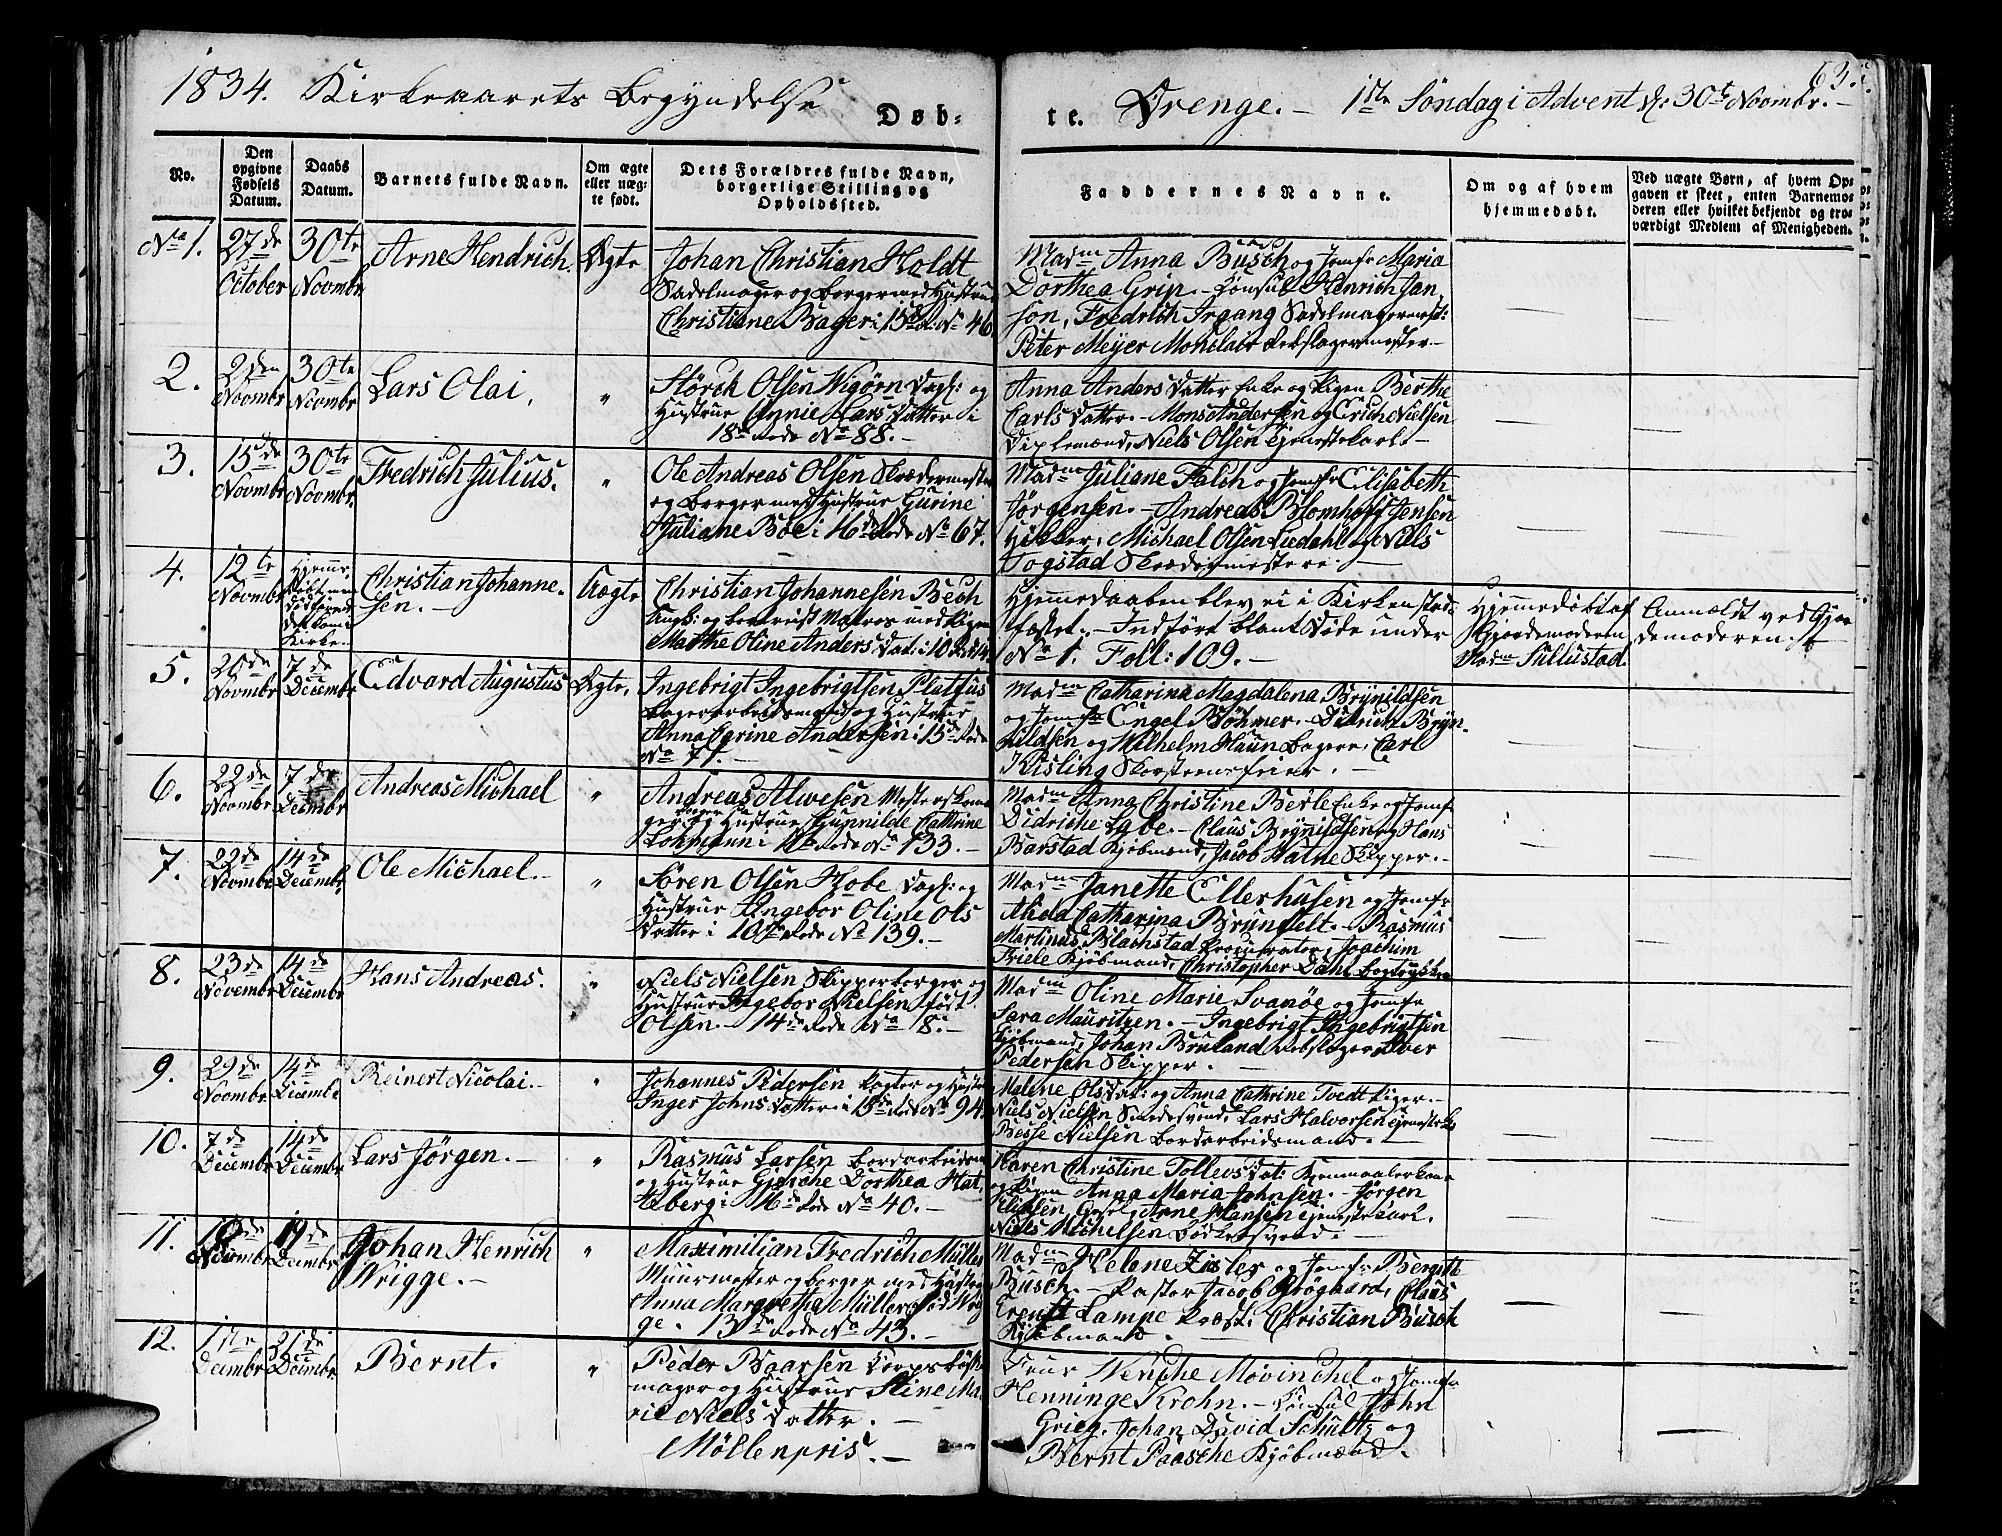 1834. Kirkeaarets Begyndelse
Døb-
te. Drenge. - 1ste Søndag i Advent d: 30te Novmbr. -
63.
No.
Den opgivne Fødsels Datum.
Daabs Datum.
Barnets fulde Navn.
Om ægte eller uægte født.
Dets Forældres fulde Navn, borgerlige Stilling og Opholdssted.
Faddernes Navne.
Om og af hvem hjemmedøbt.
Ved uægte Børn, af hvem Opgaven er skeet, enten Barnemoderen eller hvilket bekjendt og troværdigt Medlem af Menigheden.
No 1.
27de October
30te Novmbr
Arne Hendrich.
Ægte
Johan Christian Holdt
Sadelmager og borger med Hustrue
Christiane Bager i 15de R: No 46
Madm Anna Busch og Jomfr Maria
Dorthea Grip. - Consul Henrich Jan
son, Fredrich Irgang Sadelmagermest:
Peter Meyer Monclair Rebslagermester -
2.
2den Novmbr
30te Novmbr
Lars Olai,
"
Størch Olsen Wigörn Dagl: og
Hustrue Annie Lars Datter i
18de Rode No 88. -
Anna Anders Datter Enke og Pigen Berthe
Carls Datter. - Mons Andersen og Erich Nielsen
Niels Olsen tjenestekarl -
3.
15de Novmbr
30te Novmbr.
Fredrich Julius.
"
Ole Andreas Olsen Skrædermester
og borger med Hustrue Gurine
Juliane Böe i 16de Rode No 67.
Madm Juliane Falch og Jomfr Elisabeth
Jörgensen. - Andreas Blomhoff Jensen
Høkker, Michael Olsen Liedahl og Niels
Togstad Skrædermestere. -
4.
12te Novmbr
Christian Johanne-
sen. -
Uægte
Christian Johannesen Bech
Matros med Pigen
Marthe Oline Anders Dat: i 10 R:
Hjemmedaaben blev ei i Kirken stad-
fæstet. - Indført blant Døde under
No 1. Foll: 109. -
Hjemmedøbt af
Gjordemoderen
Madm Sullustad.
Anmældt ved Gjor
demoderen.
5.
20de Novmbr
7de Decembr
Edvard Augustus
Ægte,
Ingebrigt Ingebrigtsen Platfus
og Hustrue
Anna Carine Andersen i 15de Rode
No 71. -
Madm Catharina Magdalena Brynildsen
og Jomfr Engel Böhmer. - Didrich Bryn-
nildsen og Wilhelm Haun bagere, Carl
Kisling Skorsteensfeier. -
6.
22de Novmbr
7de Decmbr
Andreas Michael
"
Andreas Alwesen
og Hustrue Gunnilde Cathrine
Lohmann i 11te Rode No 133. -
Madm Anna Christine Berle Enke og Jomfr
Didriche Lybe. - Claus Brynildsen og Hans
Barstad Kjøbmænd, Jacob Hatne Skipper. -
7.
22de Novmbr
14de Decembr
Ole Michael. -
"
Sören Olsen Hobe Dagl: og
Hustrue Ingebor Oline Ols
Datter i 10de Rode No 139. -
Madm Janette Ellerhusen og Jomfr
Alida Catharina Brunfelt. - Rasmus
Martinus Blachstad Procurator, Joachim
Friele Kjøbmand, Christopher Dahl bogtrykker
8.
23de Novembr
14de Decembr
Hans Andreas.
"
Niels Nielsen Skipperborger og
Hustrue Ingebor Nielsen født
Olsen. - 14de Rode No 8. -
Madm Oline Marie Svanøe og Jomfr
Sara Mauritzen. - Ingebrigt Ingebrigtsen
Kjøbmand, Johan Bruland rebslager, Iver
Pedersen Skipper. -
9.
29de Novmbr
14de Decembr
Reinert Nicolai. -
"
Johannes Pedersen Rogter og Hustrue
Inger Johns Datter i 15de Rode No 94.
Malene Ols Dat: og Anna Cathrine Tvedt Piger. -
Niels Nielsen Smedesvend, Lars Halvorsen tjenestek:
Besse Nielsen bordarbeidsmand. -
10.
7de Decembr
14de Decembr
Lars Jörgen. -
"
Rasmus Larsen bordarbeidsm:
og Hustrue Gjerche Dorthea Hat-
leberg i 16de Rode No 40. -
Karen Christine Tollevs Dat:
og Pigen Anna Maria Johnsen. - Jörgen
Arne Hansen tjenestekarl.
Niels Michelsen Bødkersvend. -
11.
18de Novmbr
19de Decmbr
Johan Henrich
Wrigge. -
"
Maximilian Fredrich Müller
Muurmester og borger med Hustrue
Anna Margretha Müller født Wrig
ge. 13de Rode No 43. -
Madm Helene Zisler og Jomfr Bergitte
Busch. - Pastor Jacob Grøgaard, Claus
Ernst Lampe Præst. Christian Busch
Kjøbmand. -
12.
1ste Decmbr
21de Decmbr
Bernt.
"
Peder Baarsen Corps bøsse
mager og Hustrue Stine Ma-
rie Niels Datter. -
Möllenpris. -
Frue Wenche Movinchel og Jomfr
Henninge Krohn. - Consul John
Grieg, Johan David Schultz og
Bernt Paasche Kjøbmænd.